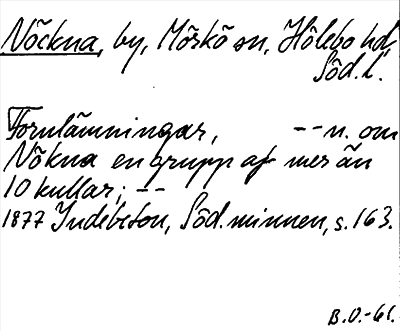 Nöckna, by, Mörkö sn, Hölebo hd,
Söd.l.
Fornlämningar, -- n. om
Nökna en grupp af mer än
10 kullar; --
1877 Indebetou, Söd. minnen, s. 163.
B.O.-61.